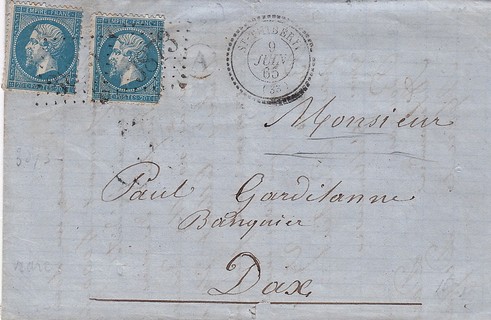 EMPIRE FRANC
EMPIRE FRANC
POSTES
A
9
JUIL
65
Monsieur
Paul Garditanne
Banquier
Dax